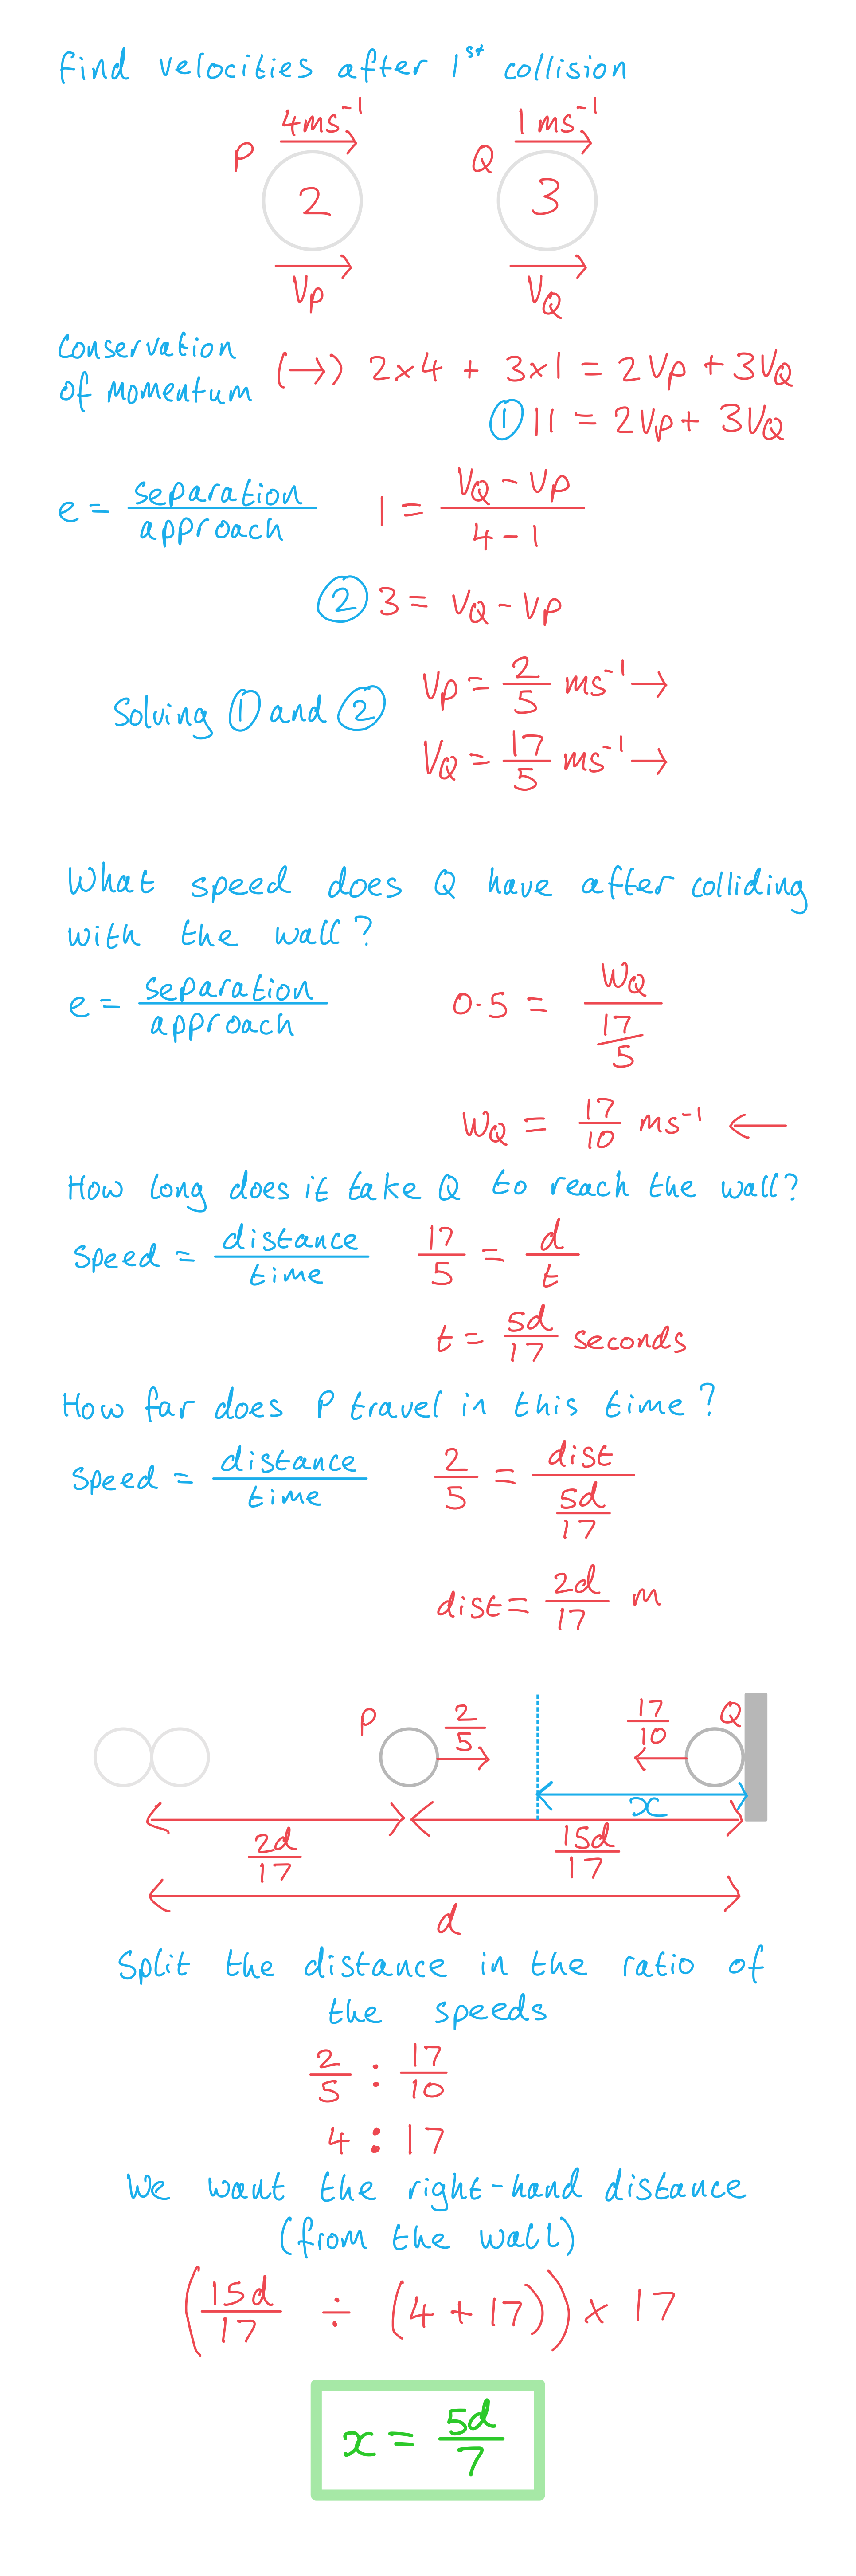 Find velocities after 1st collision
4ms⁻¹ 1ms⁻¹
P Q
2 3
Vp VQ
Conservation of momentum (→) 2×4 + 3×1 = 2Vp + 3VQ
① 11 = 2Vp + 3VQ
e = separation/approach 1 = (VQ - Vp)/(4 - 1)
② 3 = VQ - Vp
Solving ① and ② Vp = 2/5 ms⁻¹ →
VQ = 17/5 ms⁻¹ →
What speed does Q have after colliding
with the wall?
e = separation/approach 0.5 = WQ/(17/5)
WQ = 17/10 ms⁻¹ ←
How long does it take Q to reach the wall?
Speed = distance/time 17/5 = d/t
t = 5d/17 seconds
How far does P travel in this time?
Speed = distance/time 2/5 = dist/(5d/17)
dist = 2d/17 m
P 2/5 17/10 Q
x
2d/17 15d/17
d
Split the distance in the ratio of
the speeds
2/5 : 17/10
4 : 17
We want the right-hand distance
(from the wall)
(15d/17 ÷ (4 + 17)) × 17
x = 5d/7